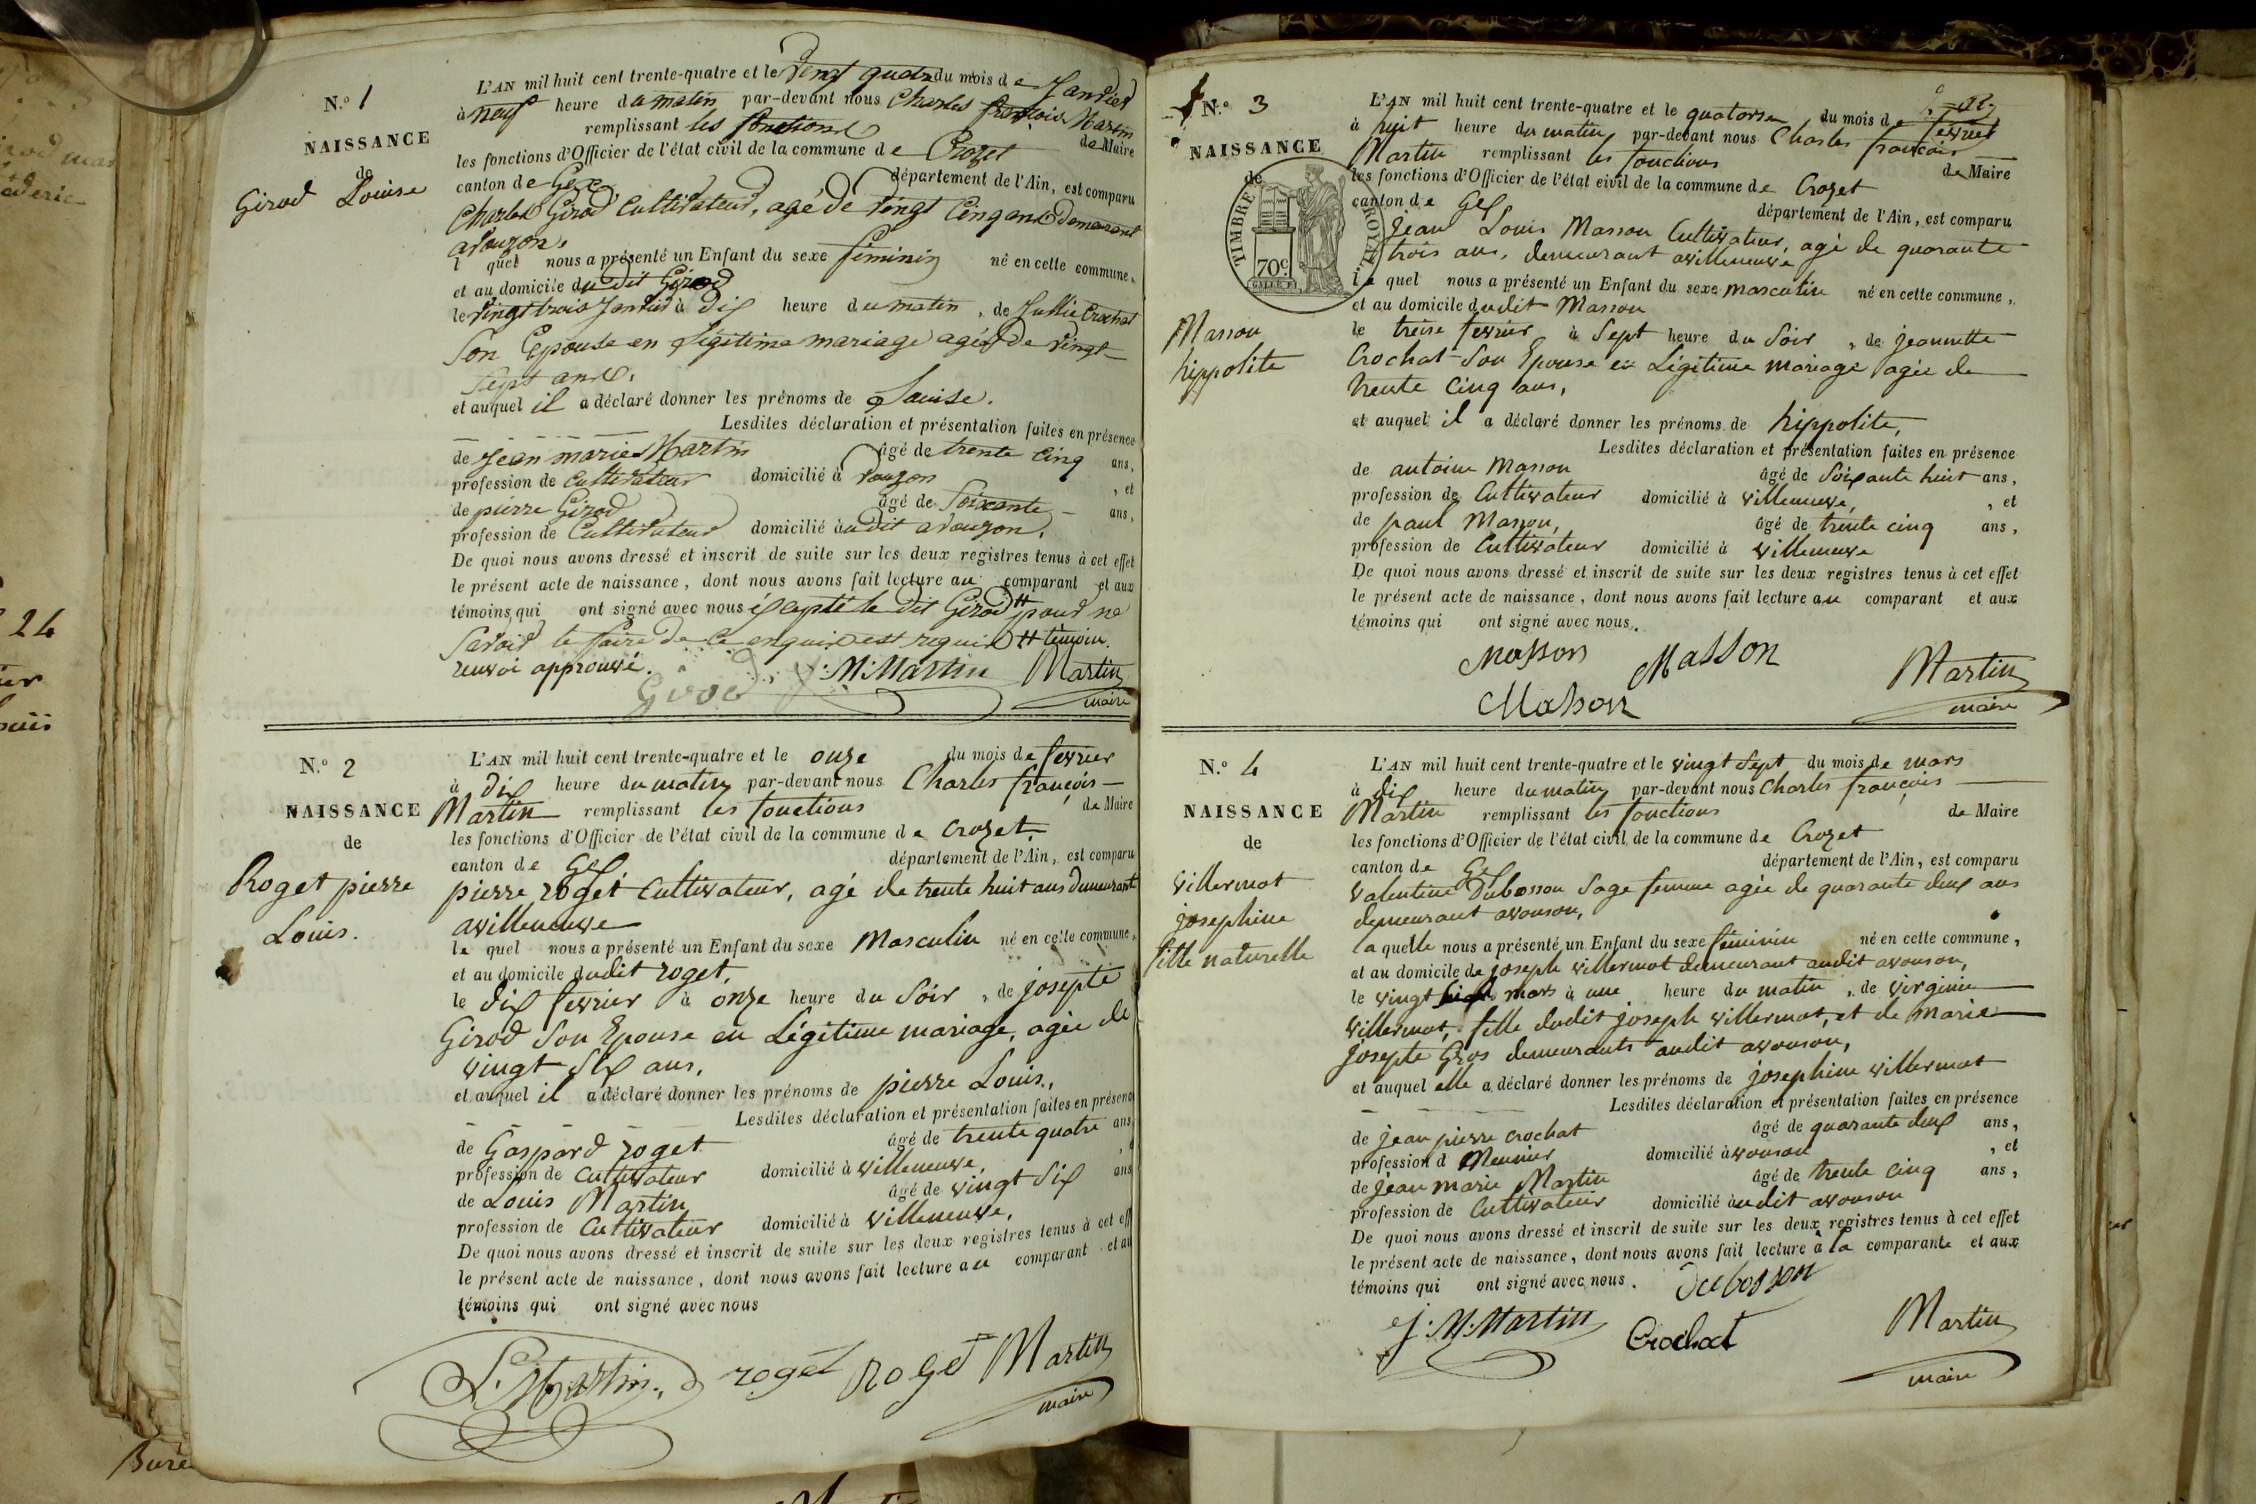 N.º 1
NAISSANCE
de
Girod Louise
L'AN mil huit cent trente-quatre et le vingt quatre du mois de Janvier
à neuf heure du matin par-devant nous Charles françois Martin
remplissant les fonctions de Maire
les fonctions d'Officier de l'état civil de la commune de Crozet
canton de Gex département de l'Ain, est comparu
Charles Girod Cultivateur, agé de vingt Cinq ans demeurant
avouzon.
l quel nous a présenté un Enfant du sexe féminin né en cette commune,
et au domicile dudit Girod
le vingt trois Janvier à dix heure du matin, de Jullie Crochat
Son Epouse en Légitime mariage agée de vingt
sept ans.
et auquel il a déclaré donner les prénoms de Louise.
Lesdites déclaration et présentation faites en présence
de jean marie Martin âgé de trente cinq ans,
profession de Cultivateur domicilié à vouzon, et
de pierre Girod âgé de Soixante ans,
profession de Cultivateur domicilié audit avouzon.
De quoi nous avons dressé et inscrit de suite sur les deux registres tenus à cet effet
le présent acte de naissance, dont nous avons fait lecture au comparant et aux
témoins qui ont signé avec nous excepté le dit Girod # pour ne
Savoir le faire de ce enquis est requis # témoin.
renvoi approuvé.
Girod J. M. Martin Martin
maire
N.º 2
NAISSANCE
de
Roget pierre
Louis.
L'AN mil huit cent trente-quatre et le onze du mois de fevrier
à dix heure du matin par-devant nous Charles françois
Martin remplissant les fonctions de Maire
les fonctions d'Officier de l'état civil de la commune de Crozet
canton de Gex département de l'Ain, est comparu
pierre roget Cultivateur, agé de trente huit ans demeurant
avilleneuve
le quel nous a présenté un Enfant du sexe Masculin né en cette commune,
et au domicile dudit roget,
le dix fevrier à onze heure du Soir, de josepte
Girod Son Epouse en Légitime mariage, agée de
vingt Six ans,
et auquel il a déclaré donner les prénoms de pierre Louis,
Lesdites déclaration et présentation faites en présence
de Gaspard roget âgé de trente quatre ans
profession de Cultivateur domicilié à villeneuve,
de Louis Martin âgé de vingt Six ans
profession de Cultivateur domicilié à villeneuve,
De quoi nous avons dressé et inscrit de suite sur les deux registres tenus à cet eff
le présent acte de naissance, dont nous avons fait lecture au comparant et au
témoins qui ont signé avec nous
L. Martin. roget roget Martin
maire
N.º 3
NAISSANCE
de
TIMBRE ROYAL
70c
Masson
hippolite
L'AN mil huit cent trente-quatre et le quatorze du mois de fevrier
à huit heure du matin par-devant nous Charles françois
Martin remplissant les fonctions de Maire
les fonctions d'Officier de l'état civil de la commune de Crozet
canton de Gex département de l'Ain, est comparu
jean Louis Masson Cultivateur, agé de quarante
trois ans, demeurant avilleneuve
le quel nous a présenté un Enfant du sexe masculin né en cette commune,
et au domicile dudit Masson
le treize fevrier à Sept heure du Soir, de jeannette
Crochat Son Epouse en Légitime mariage agée de
trente cinq ans,
et auquel il a déclaré donner les prénoms de hippolite,
Lesdites déclaration et présentation faites en présence
de antoine Masson âgé de Soixante huit ans,
profession de Cultivateur domicilié à villeneuve, et
de paul Masson, âgé de trente cinq ans,
profession de Cultivateur domicilié à villeneuve
De quoi nous avons dressé et inscrit de suite sur les deux registres tenus à cet effet
le présent acte de naissance, dont nous avons fait lecture au comparant et aux
témoins qui ont signé avec nous.
Masson Masson Martin
Masson maire
N.º 4
NAISSANCE
de
villermot
josephine
fille naturelle
L'AN mil huit cent trente-quatre et le vingt Sept du mois de mars
à dix heure du matin par-devant nous Charles françois
Martin remplissant les fonctions de Maire
les fonctions d'Officier de l'état civil de la commune de Crozet
canton de Gex département de l'Ain, est comparu
valentine Dubosson Sage femme agée de quarante deux ans
demeurant avouson,
la quelle nous a présenté un Enfant du sexe feminin né en cette commune,
et au domicile de joseph villermot demeurant audit avouson,
le vingt mars à une heure du matin, de virginie
villermot, fille dudit joseph villermot, et de Marie
josepte Gros demeurants audit avouson,
et auquel elle a déclaré donner les prénoms de josephine villermot
Lesdites déclaration et présentation faites en présence
de jean pierre crochat âgé de quarante deux ans,
profession d Meunier domicilié à vouson, et
de jean marie Martin âgé de trente cinq ans,
profession de Cultivateur domicilié audit avouson
De quoi nous avons dressé et inscrit de suite sur les deux registres tenus à cet effet
le présent acte de naissance, dont nous avons fait lecture à la comparante et aux
témoins qui ont signé avec nous. Dubosson
J. M. Martin Crochat Martin
maire